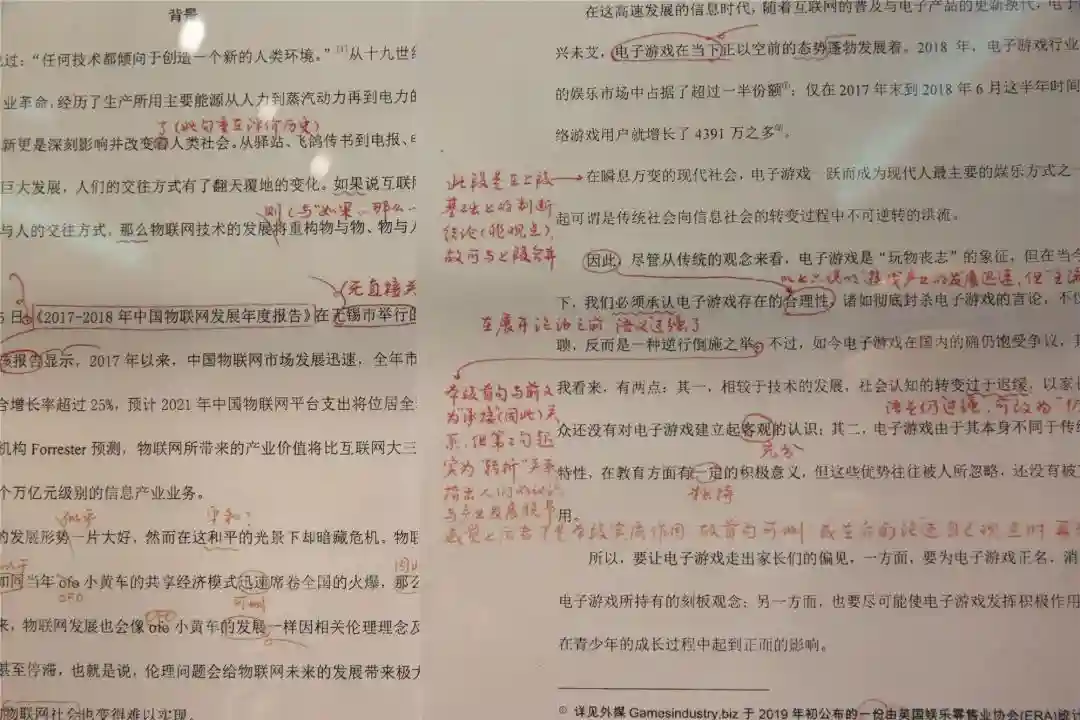 背景
过：“任何技术都倾向于创造一个新的人类环境。”[1]从十九世纪
业革命，经历了生产所用主要能源从人力到蒸汽动力再到电力的
了(此句重在评价历史)
新更是深刻影响并改变着人类社会。从驿站、飞鸽传书到电报、
巨大发展，人们的交往方式有了翻天覆地的变化。如果说互联网
则(与“如果…那么…
与人的交往方式，那么物联网技术的发展将重构物与物、物与人
(无直接关
5日，《2017-2018年中国物联网发展年度报告》在无锡市举行的
该报告显示，2017年以来，中国物联网市场发展迅速，全年市
合增长率超过25%，预计2021年中国物联网平台支出将位居全
机构 Forrester 预测，物联网所带来的产业价值将比互联网大三
个万亿元级别的信息产业业务。
似乎 平和？
的发展形势一片大好，然而在这和平的光景下却暗藏危机。物联
而同当年 ofo 小黄车的共享经济模式迅速席卷全国的火爆，那么
OFO 可删
来，物联网发展也会像 ofo 小黄车的发展一样因相关伦理理念及
OFO
甚至停滞，也就是说，伦理问题会给物联网未来的发展带来极大
的物联网社会也变得难以实现。
在这高速发展的信息时代，随着互联网的普及与电子产品的更新换代，电子
兴未艾，电子游戏在当下正以空前的态势蓬勃发展着。2018 年，电子游戏行业
的娱乐市场中占据了超过一半份额①；仅在 2017 年末到 2018 年 6 月这半年时间
络游戏用户就增长了 4391 万之多②。
此段是在上段
基础上的判断
结论(非观点)，
故可与上段合并
在瞬息万变的现代社会，电子游戏一跃而成为现代人最主要的娱乐方式之一
起可谓是传统社会向信息社会的转变过程中不可逆转的洪流。
因此，尽管从传统的观念来看，电子游戏是“玩物丧志”的象征，但在当今
下，我们必须承认电子游戏存在的合理性，诸如彻底封杀电子游戏的言论，不仅
在展开论述之前，语义过强了
聊，反而是一种逆行倒施之举。不过，如今电子游戏在国内的确仍饱受争议，其
本段首句与前文
为“承接”(因此)关
系，但第2句起
实为“转折”关系
我看来，有两点：其一，相较于技术的发展，社会认知的转变过于迟缓，以家长
众还没有对电子游戏建立起客观的认识；其二，电子游戏由于其本身不同于传统
充分
特性，在教育方面有一定的积极意义，但这些优势往往被人所忽略，还没有被
独特
用。
所以，要让电子游戏走出家长们的偏见，一方面，要为电子游戏正名，消
电子游戏所持有的刻板观念；另一方面，也要尽可能使电子游戏发挥积极作用
在青少年的成长过程中起到正面的影响。
① 详见外媒 Gamesindustry.biz 于 2019 年初公布的一份由英国娱乐零售业协会(ERA)统计